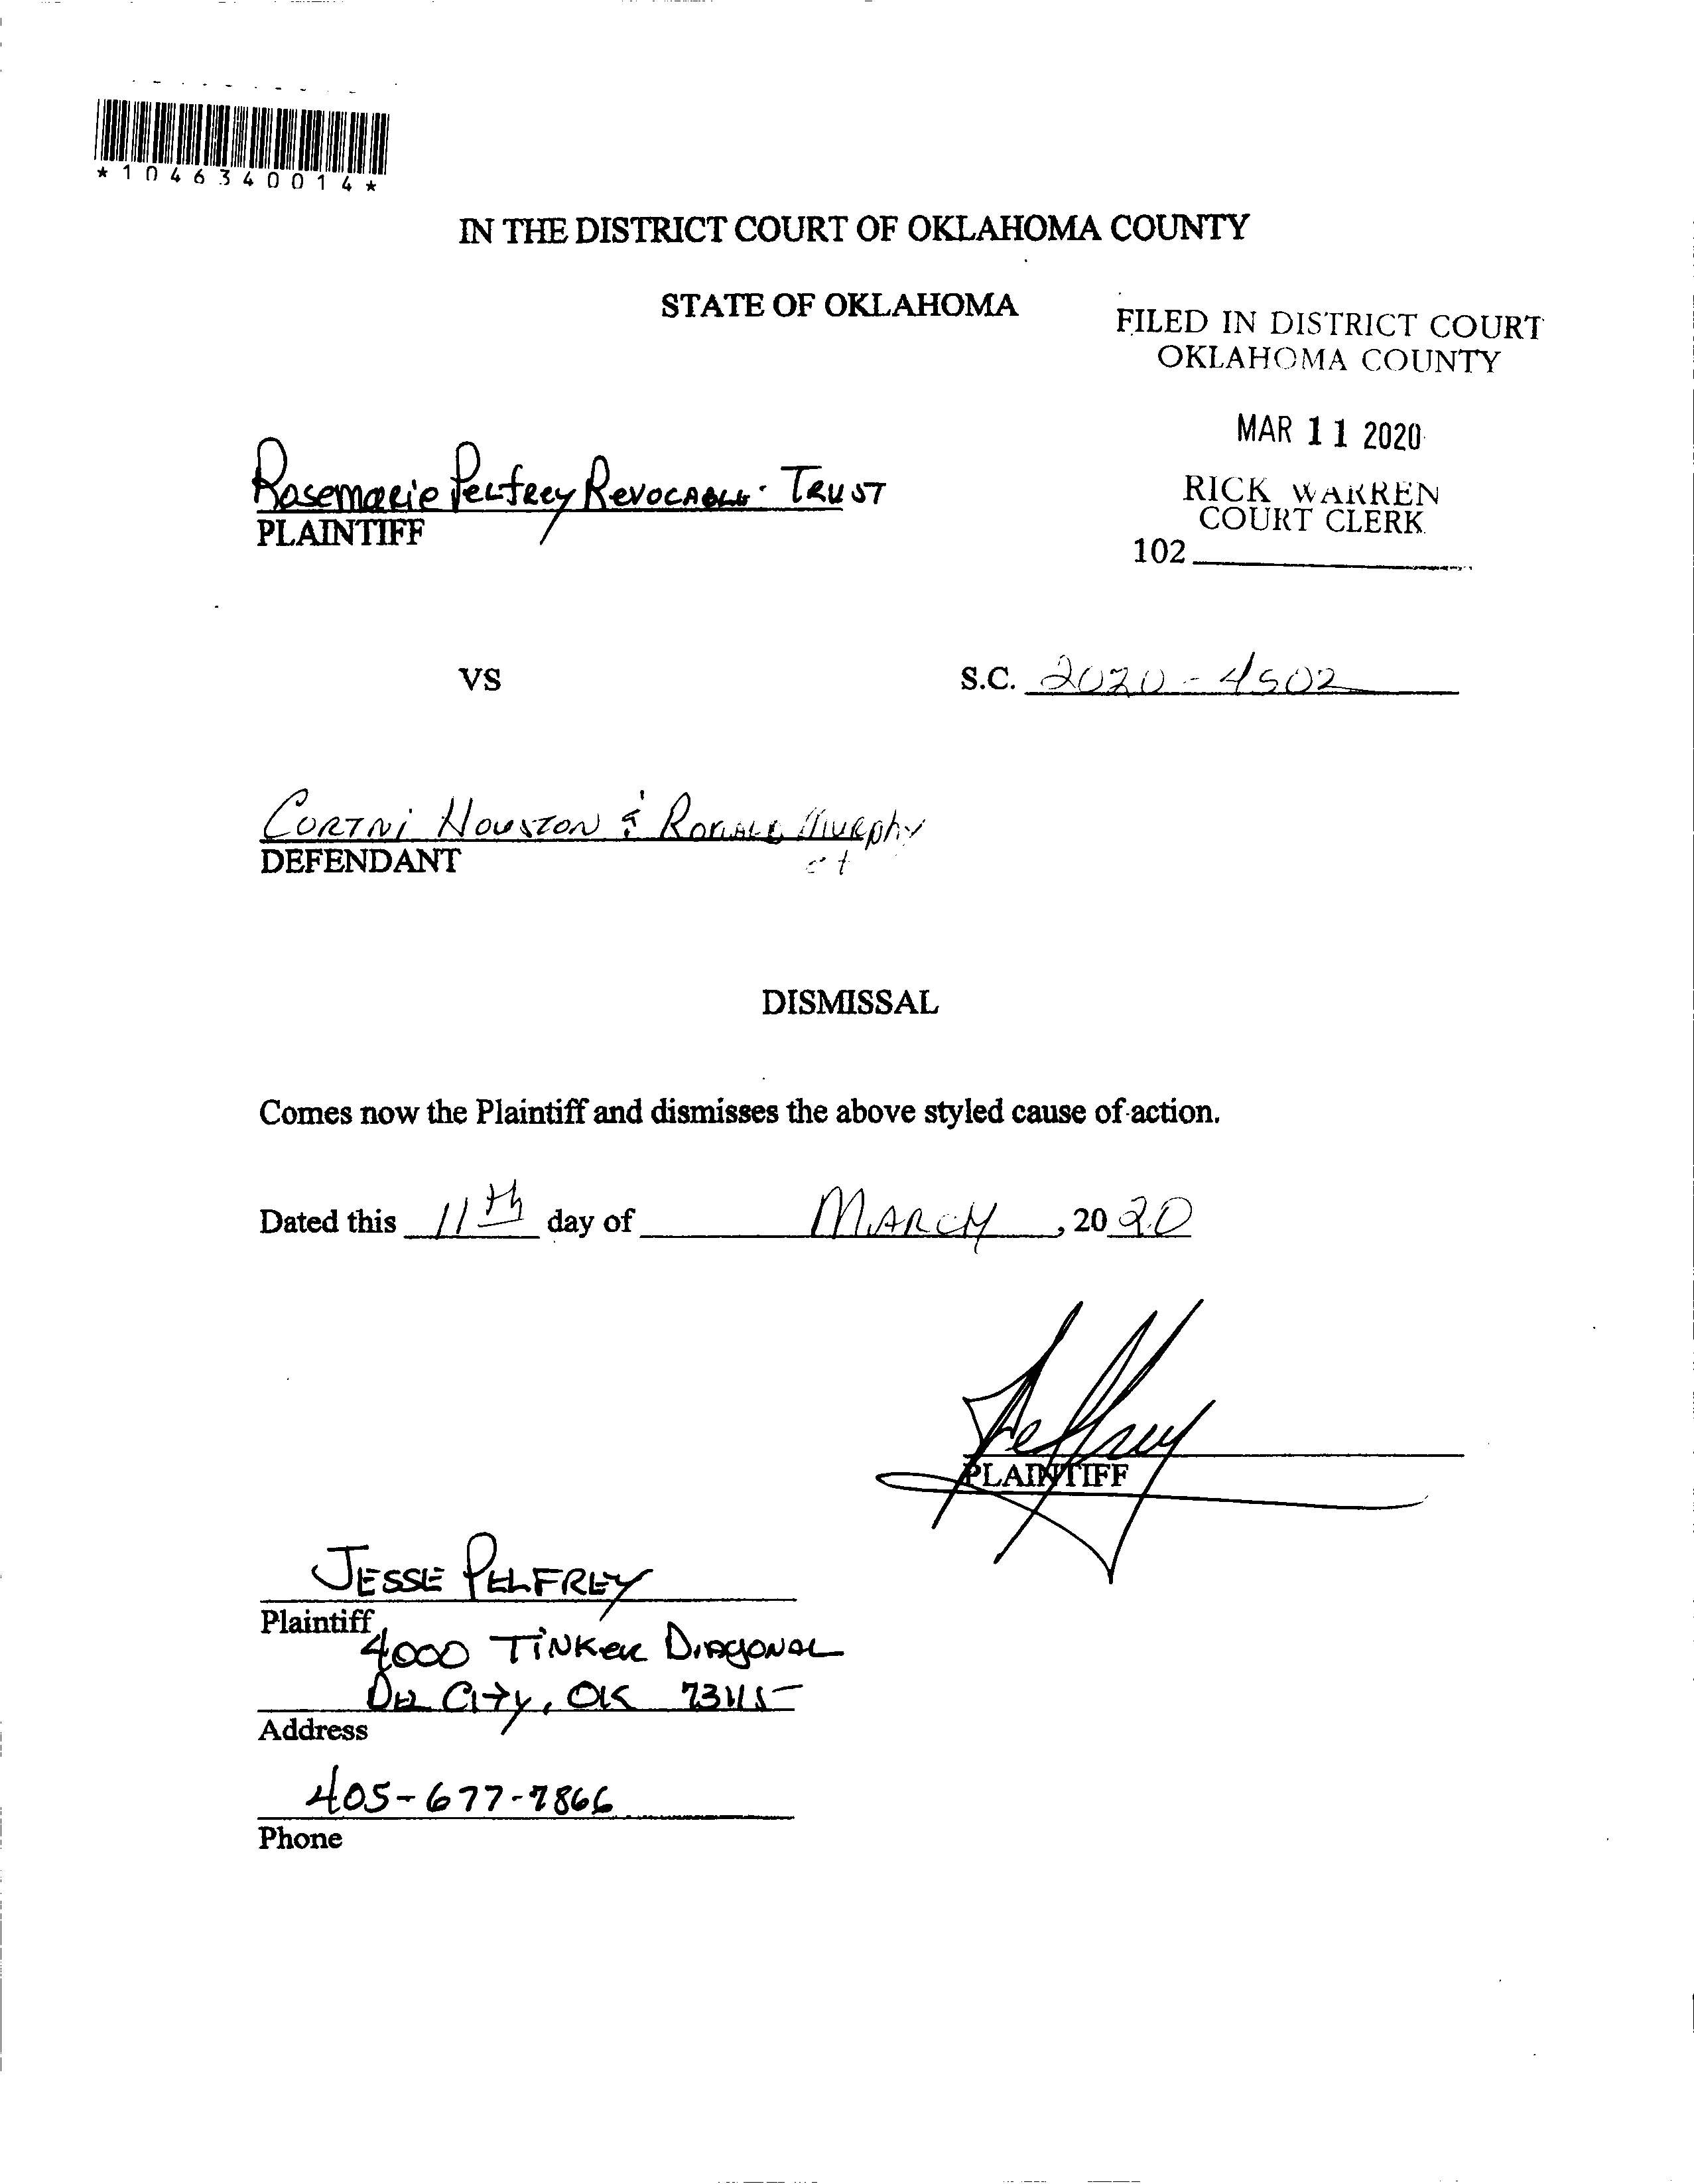 *1046340014*
IN THE DISTRICT COURT OF OKLAHOMA COUNTY
STATE OF OKLAHOMA
FILED IN DISTRICT COURT
OKLAHOMA COUNTY
MAR 11 2020
RICK WARREN
COURT CLERK
102
Rosemarie Pelfrey Revocable Trust
PLAINTIFF
VS
S.C. 2020-4502
Cortni Houston & Ronald Murphy
DEFENDANT
DISMISSAL
Comes now the Plaintiff and dismisses the above styled cause of action.
Dated this 11th day of MARCH, 2020
Pelfrey
PLAINTIFF
JESSE PELFREY
Plaintiff
4000 TINKER DIAGONAL
DEL CITY, OK 73115
Address
405-677-7866
Phone